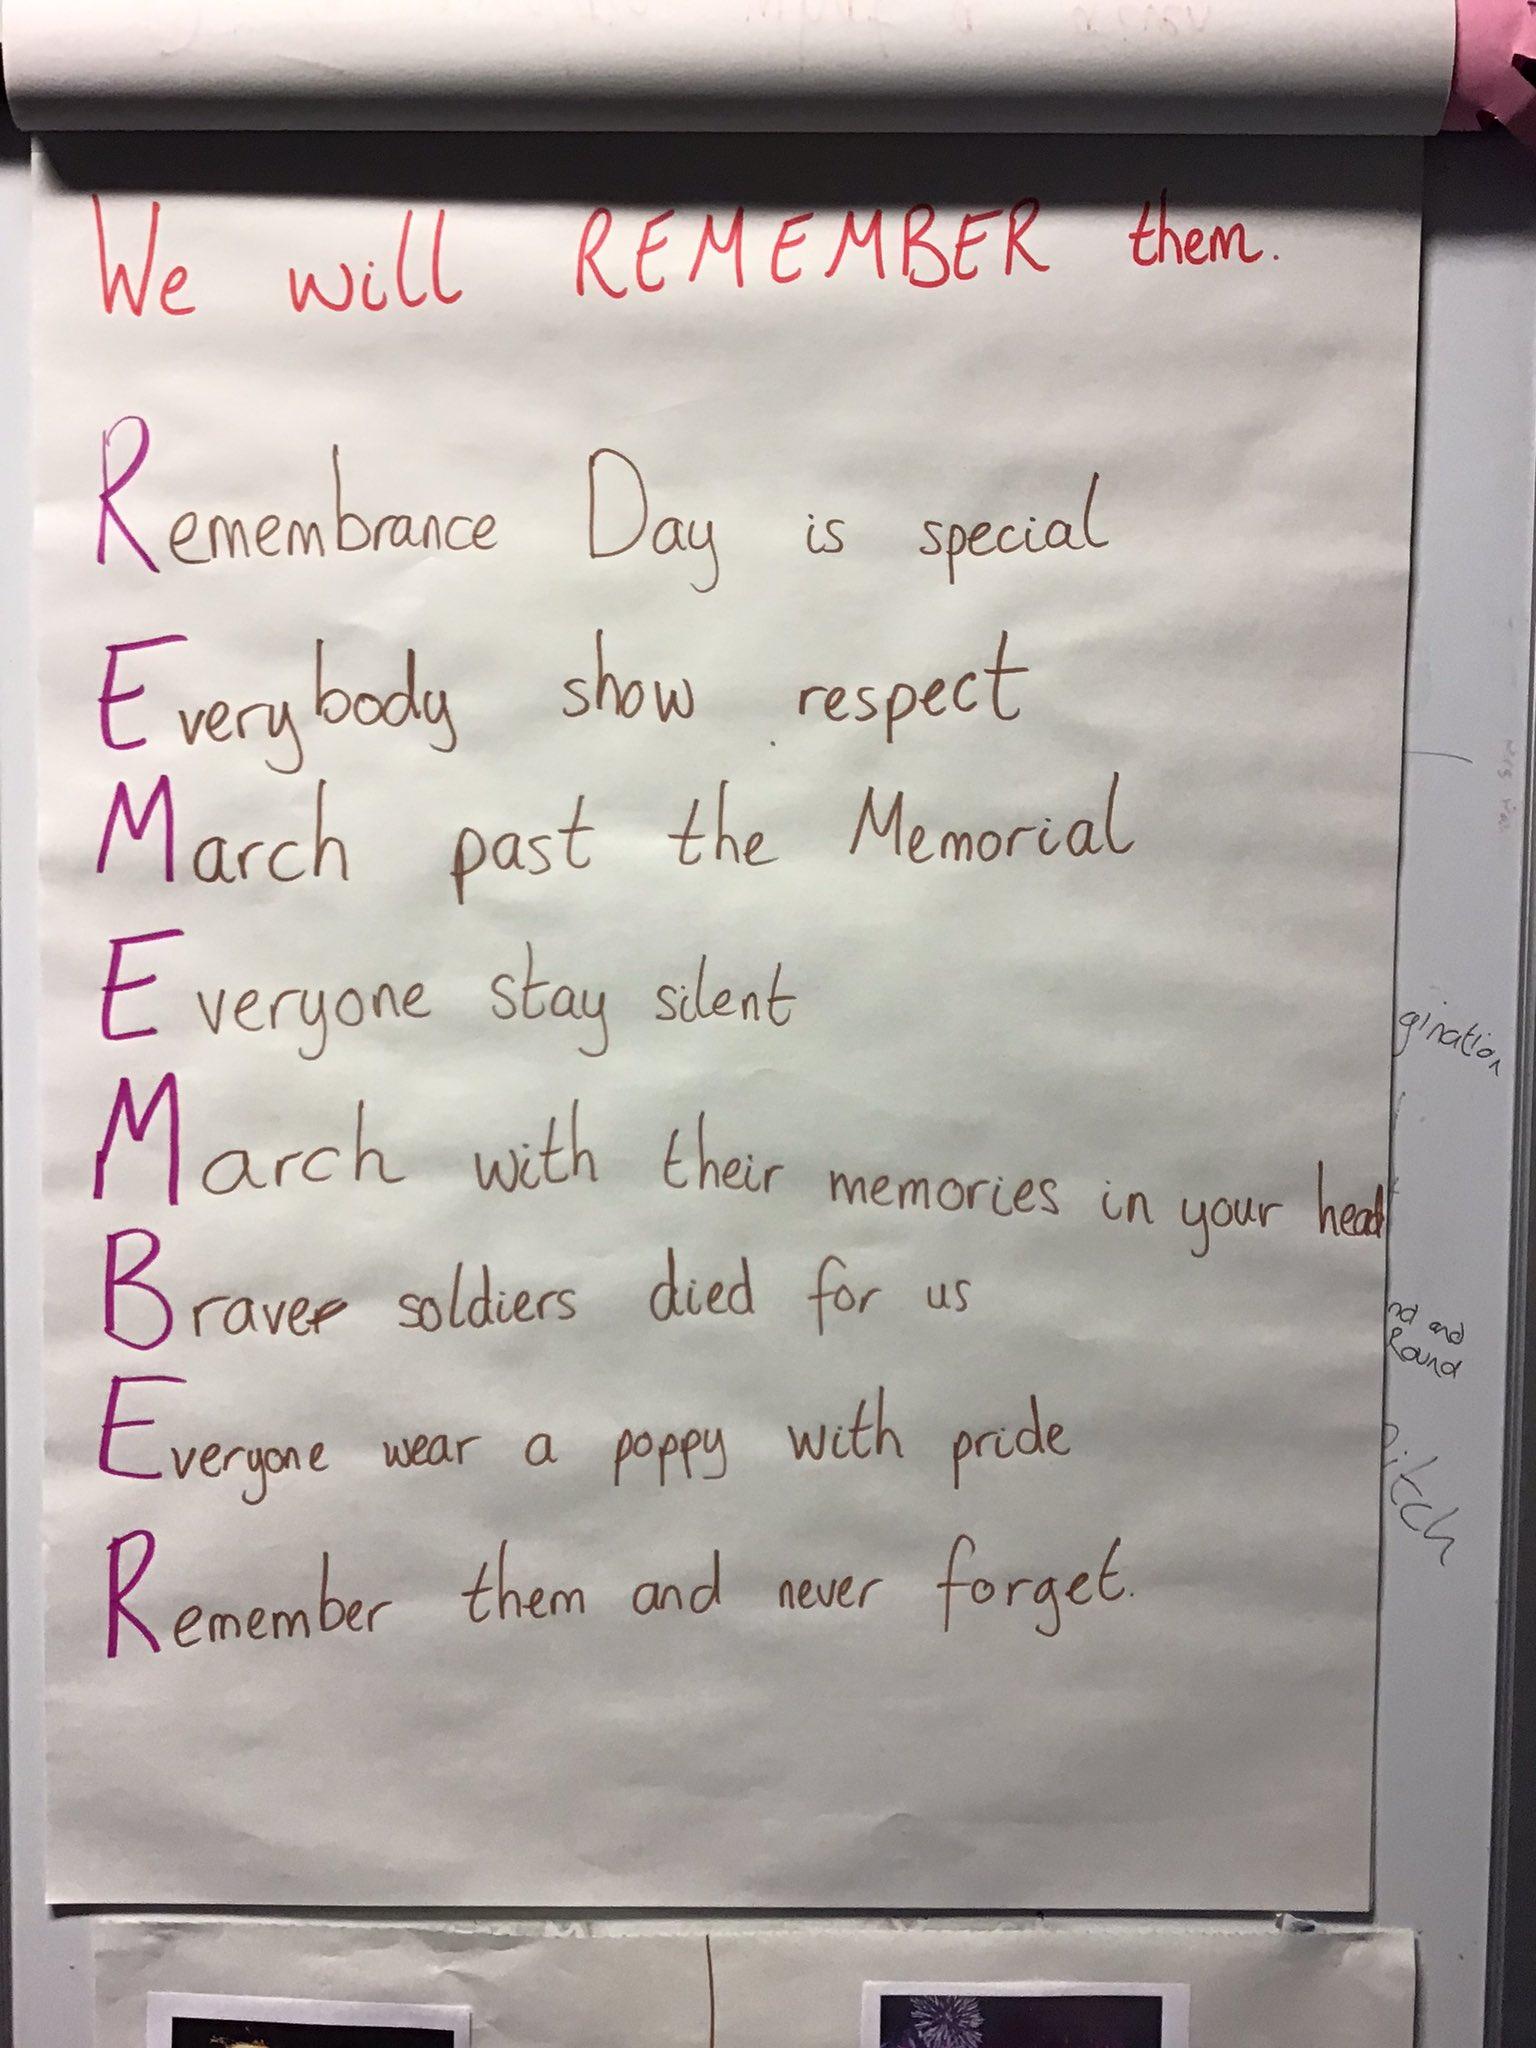 We will REMEMBER them.
Remembrance Day is special
Everybody show respect
March past the Memorial
Everyone stay silent
March with their memories in your head
Brave soldiers died for us
Everyone wear a poppy with pride
Remember them and never forget.
gination
nd and
Round
itch